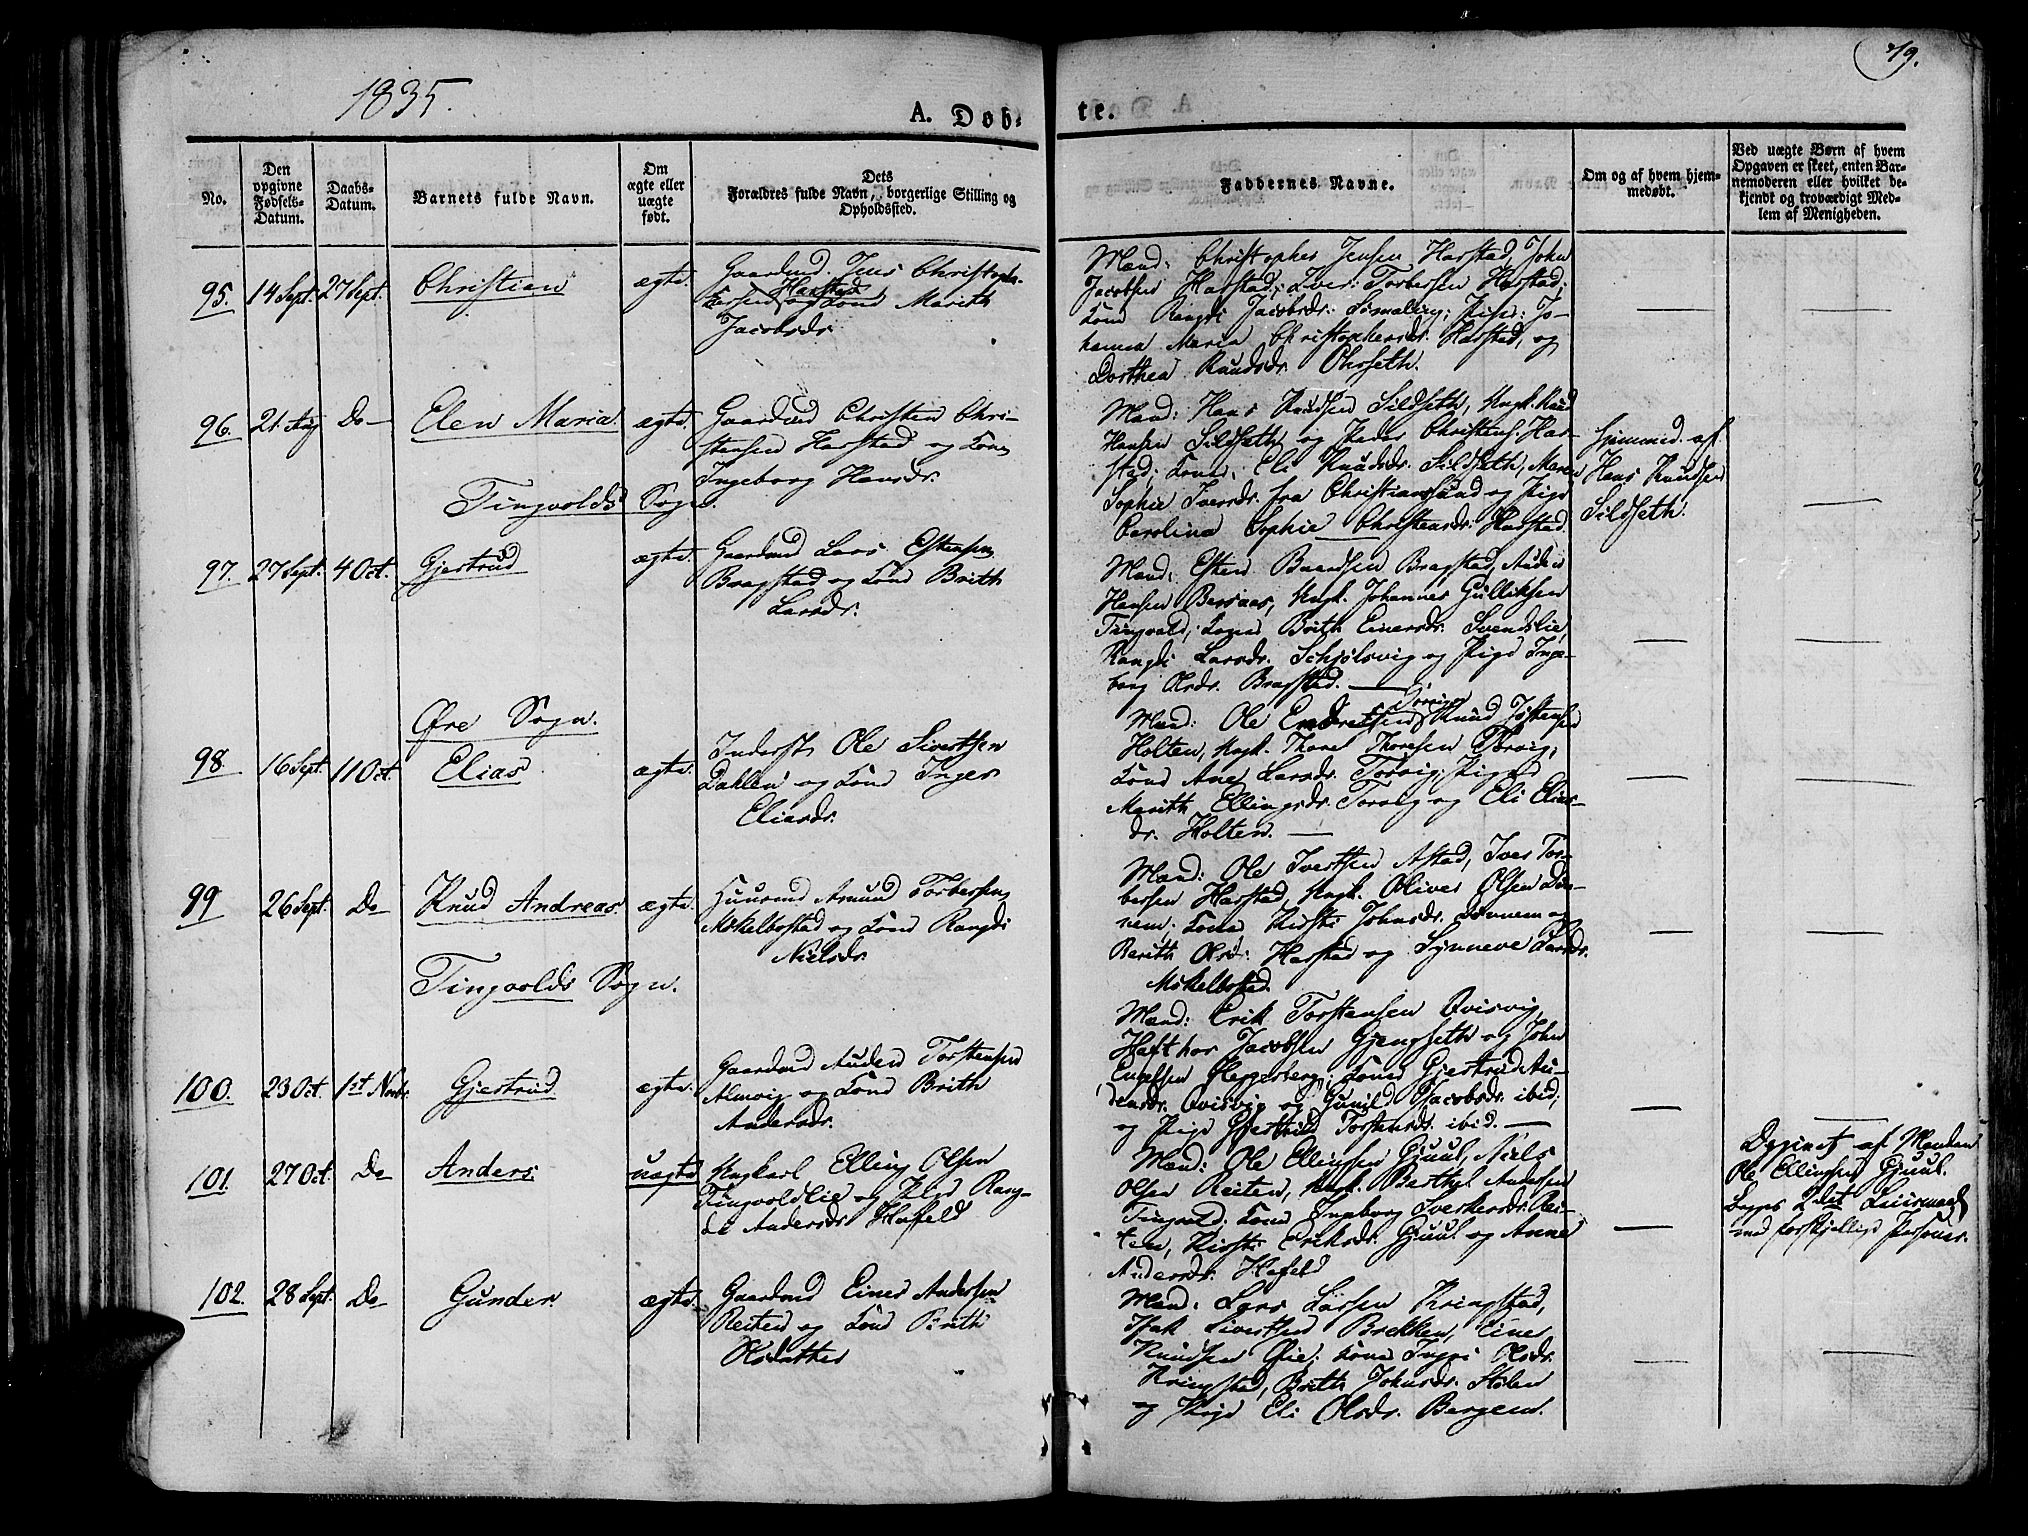 1835.
79.
A. Døb-
te.
No.
Den
opgivne
Fødsels-
Datum.
Daabs-
Datum.
Barnets fulde Navn.
Om
ægte eller
uægte
født.
Dets
Forældres fulde Navn, borgerlige Stilling og
Opholdssted.
Faddernes Navne.
Om og af hvem hjem-
medøbt.
Ved uægte Børn af hvem
Opgaven er skeet, enten Bar-
nemoderen eller hvilket be-
kjendt og troværdigt Med-
lem af Menigheden.
95. 14 Sept. 27 Sept. Christian ægte.
Gaardmd. Jens Christoph-
ersen Harstad og Kone Marith
Jacobsdr.
Mænd: Christopher Jensen Harstad, John
Jacobsen Harstad, Iver Torbersen Harstad;
Kone Rangdi Jacobsdr. ; Pige: Jo-
hanna Maria Christophersdr. Harstad, og
Dorthea Knudsdr. Ohrseth.
96. 21 Aug Do Elen Maria. ægte.
Gaardmd Christen Chri-
stensen Harstad og Kone
Ingeborg Hansdr.
Mænd: Hans Knudsen Sildseth, Ungk. Knud
Hansen Sildseth og Peder Christens. Har-
stad; Kone: Eli Knudsdr. Sildseth, Maren
Sophie Iversdr. fra Christiansund og Pige
Carolina Sophie Christensdr. Harstad.
Hjemmed. af
Hans Knudsen
Sildseth.
Tingvolds Sogn.
97. 27 Sept. 4 Oct. Gjertrud ægte.
Gaardmd Lars Estensen
Bragstad og Kone Brith
Larsdr.
Mænd: Esten Baardsen Bragstad, Auden
Hansen Bersaas, Ungk. Johannes Gulliksen
Tingvold; Kone Brith Einersdr. Svendslie,
Rangdi Larsdr. Schjølsvig og Pige Inge-
borg Olsdr. Bragstad.
Øre Sogn.
98. 16 Sept. 11 Oct. Elias ægte.
Inderst Ole Sivertsen
Dahlen og Kone Inger
Eliasdr.
Mænd: Ole Endretsen Torvig Knud Jostensen
Holten, Ungk. Thorel Thoresen Torvig;
Kone Ane Larsdr. Torvig; Piger
Marith Ellingsdr. Torvig og Eli Elias-
dr. Holten.
99 26 Sept. Do Knud Andreas. ægte.
Huusmd Amund Torbersen
Mekelbostad og Kone Rangdi
Nielsdr.
Mænd: Ole Ivertsen Astad, Iver Tor-
bersen Harstad, Ungk. Oliver Olsen Døn-
nem; Kone Kirsti Johnsdr. Dønnem og
Berith Olsdr: Harstad og Synneve Larsdr.
Mekelbostad.
Tingvolds Sogn.
100. 23 Oct. 1st Novbr. Gjertrud ægte.
Gaardmd Auden Torstensen
Almvig og Kone Brith
Andersdr.
Mænd: Erik Torstensen Qvisvig,
Hafthor Jacobsen Gjengseth og John
Engelsen Heggerberg; Kone Gjertrud Au-
densdr. Qvisvig og Gunild Jacobsdr. ibid;
og Pige Gjertrud Torstensdr. ibid.
101. 27 Oct. Do Anders uægte
Ungkarl Elling Olsen
Tingvoldlie og Pige Rang-
di Andersdr. Hafeld
Mænd: Ole Ellingsen Gjuul, Niels
Olsen Reiten, Ungk. Berthel Andersen
Tingvold; Kone Ingeborg Sverkersdr. Rei-
ten, Kirsti Eriksdr. Gjuul og Anne
Andersdr. Hafeld
Opgivet af Manden
Ole Ellingsen Gjuul.
Begges 2det Leiermaal
med forskjellige Personer.
102. 28 Sept. Do Gunder. ægte.
Gaardmd Einer Andersen
Reiten og Kone Brith
Olsdatter
Mænd: Lars Larsen Kringstad,
Isak Sivertsen Brekken, Einer
Knudsen Øie; Kone Ingri Olsdr.
Kringstad, Brith Johnsdr. Stølen
og Pige Eli Olsdr. Bergem.